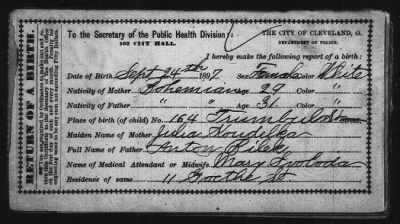 RETURN OF A BIRTH.
To the Secretary of the Public Health Division:
102 CITY HALL.
THE CITY OF CLEVELAND, O.
DEPARTMENT OF POLICE.
I hereby make the following report of a birth:
Date of Birth Sept 24th 1897 Sex Female Color White
Nativity of Mother Bohemian Age 29 Color "
Nativity of Father " Age 31 Color "
Place of birth (of child) No. 164 Trumbull Street
Maiden Name of Mother Julia Koudelka
Full Name of Father Anton
Name of Medical Attendant or Midwife Mary Svoboda
Residence of same 11 Goethe St